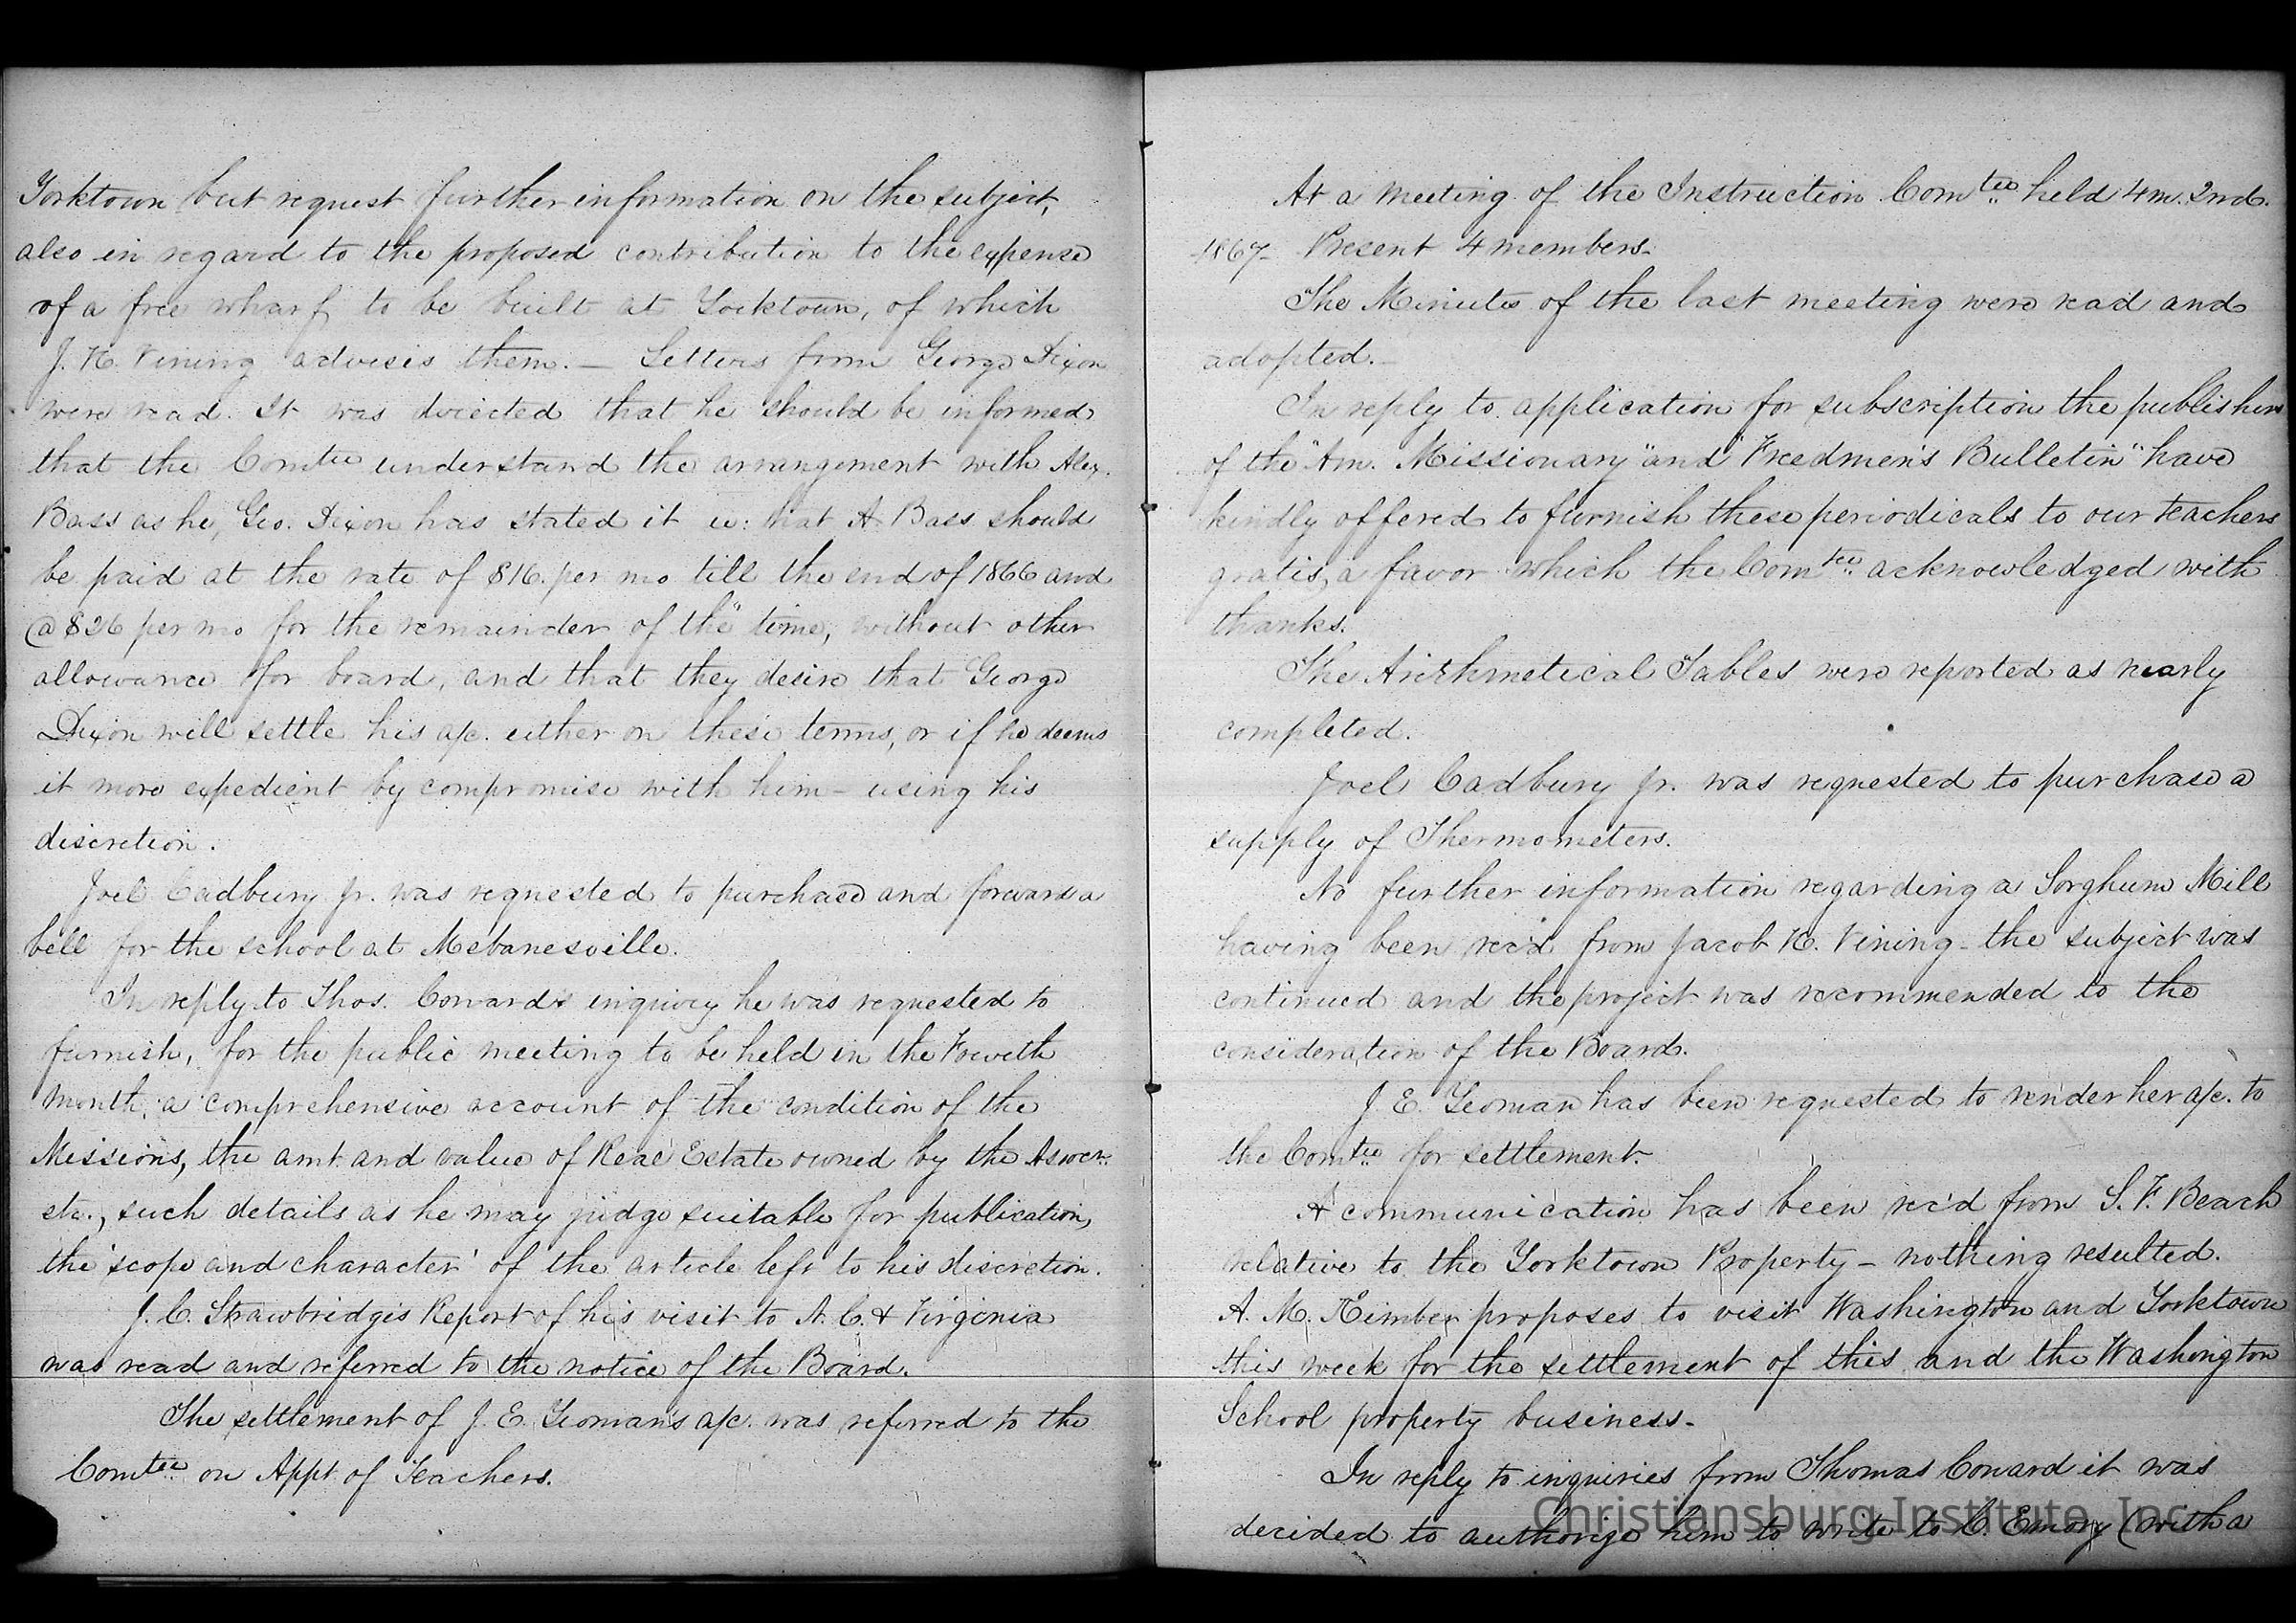 Yorktown but request further information on the subject,
also in regard to the proposed contribution to the expense
of a free wharf to be built at Yorktown, of which
J. H. Vining advises them. — Letters from George Dixon
were read. It was directed that he should be informed
that the Comtee understand the arrangement with Alex.
Bass as he, Geo. Dixon has stated it : that A Bass should
be paid at the rate of $16. per mo till the end of 1866 and
@ $26 per mo for the remainder of the time, without other
allowance for board, and that they desire that George
Dixon will settle his a/c. either on these terms, or if he deems
it more expedient by compromise with him – using his
discretion.
Joel Cadbury Jr. was requested to purchase and forward a
bell for the school at Mebanesville.
In reply to Thos. Conard's inquiry he was requested to
furnish, for the public meeting to be held in the Fourth
Month, a comprehensive account of the condition of the
Missions, the amt. and value of Real Estate owned by the
etc., such details as he may judge suitable for publication,
the 'scope and character' of the article left to his discretion.
J. C. Strawbridge's Report of his visit to N. C. & Virginia
was read and referred to the notice of the Board.
The settlement of J. E. Yeoman's a/c. was referred to the
Comtee on Appt. of Teachers.
At a Meeting of the Instruction Comtee held 4m. 2nd.
1867– Present 4 members–
The Minutes of the last meeting were read and
adopted.–
In reply to application for subscription the publishers
of the "Am. Missionary" and "Freedmen's Bulletin" have
kindly offered to furnish these periodicals to our teachers
gratis, a favor which the Comtee acknowledged with
thanks.
The Arithmetical Tables were reported as nearly
completed.
Joel Cadbury Jr. was requested to purchase a
supply of Thermometers.
No further information regarding a Sorghum Mill
having been rec'd from Jacob H. Vining – the subject was
continued and the project was recommended to the
consideration of the Board.
J. E. Yeoman has been requested to render her a/c. to
the Comtee for settlement.
A communication has been rec'd from S. F. Beach
relative to the Yorktown Property – nothing resulted.
A. M. Kimber proposes to visit Washington and Yorktown
this week for the settlement of this and the Washington
School property business–
In reply to inquiries from Thomas Conard it was
decided to authorize him to write to C. Emory (with a
Christiansburg Institute, Inc.